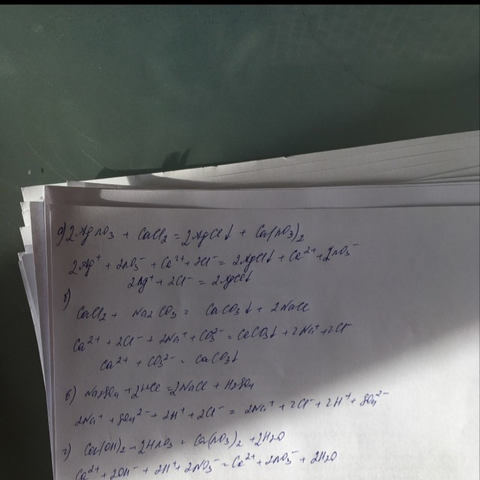 а) 2AgNO3 + CaCl2 = 2AgCl↓ + Ca(NO3)2
2Ag⁺ + 2NO3⁻ + Ca²⁺ + 2Cl⁻ = 2AgCl↓ + Ca²⁺ + 2NO3⁻
2Ag⁺ + 2Cl⁻ = 2AgCl↓
б)
CaCl2 + Na2CO3 = CaCO3↓ + 2NaCl
Ca²⁺ + 2Cl⁻ + 2Na⁺ + CO3²⁻ = CaCO3↓ + 2Na⁺ + 2Cl⁻
Ca²⁺ + CO3²⁻ = CaCO3↓
в) Na2SO4 + 2HCl = 2NaCl + H2SO4
2Na⁺ + SO4²⁻ + 2H⁺ + 2Cl⁻ = 2Na⁺ + 2Cl⁻ + 2H⁺ + SO4²⁻
г) Ca(OH)2 + 2HNO3 = Ca(NO3)2 + 2H2O
Ca²⁺ + 2OH⁻ + 2H⁺ + 2NO3⁻ = Ca²⁺ + 2NO3⁻ + 2H2O